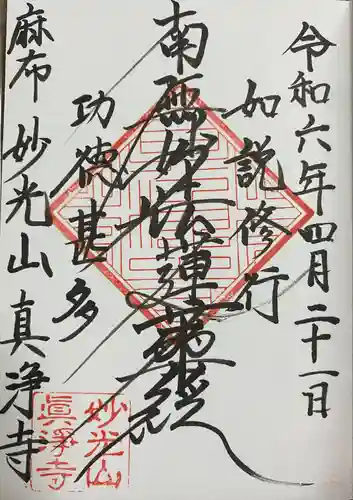 令和六年四月二十一日
如説修行
南無妙法蓮華経
功徳甚多
麻布妙光山真浄寺
妙光山
眞淨寺